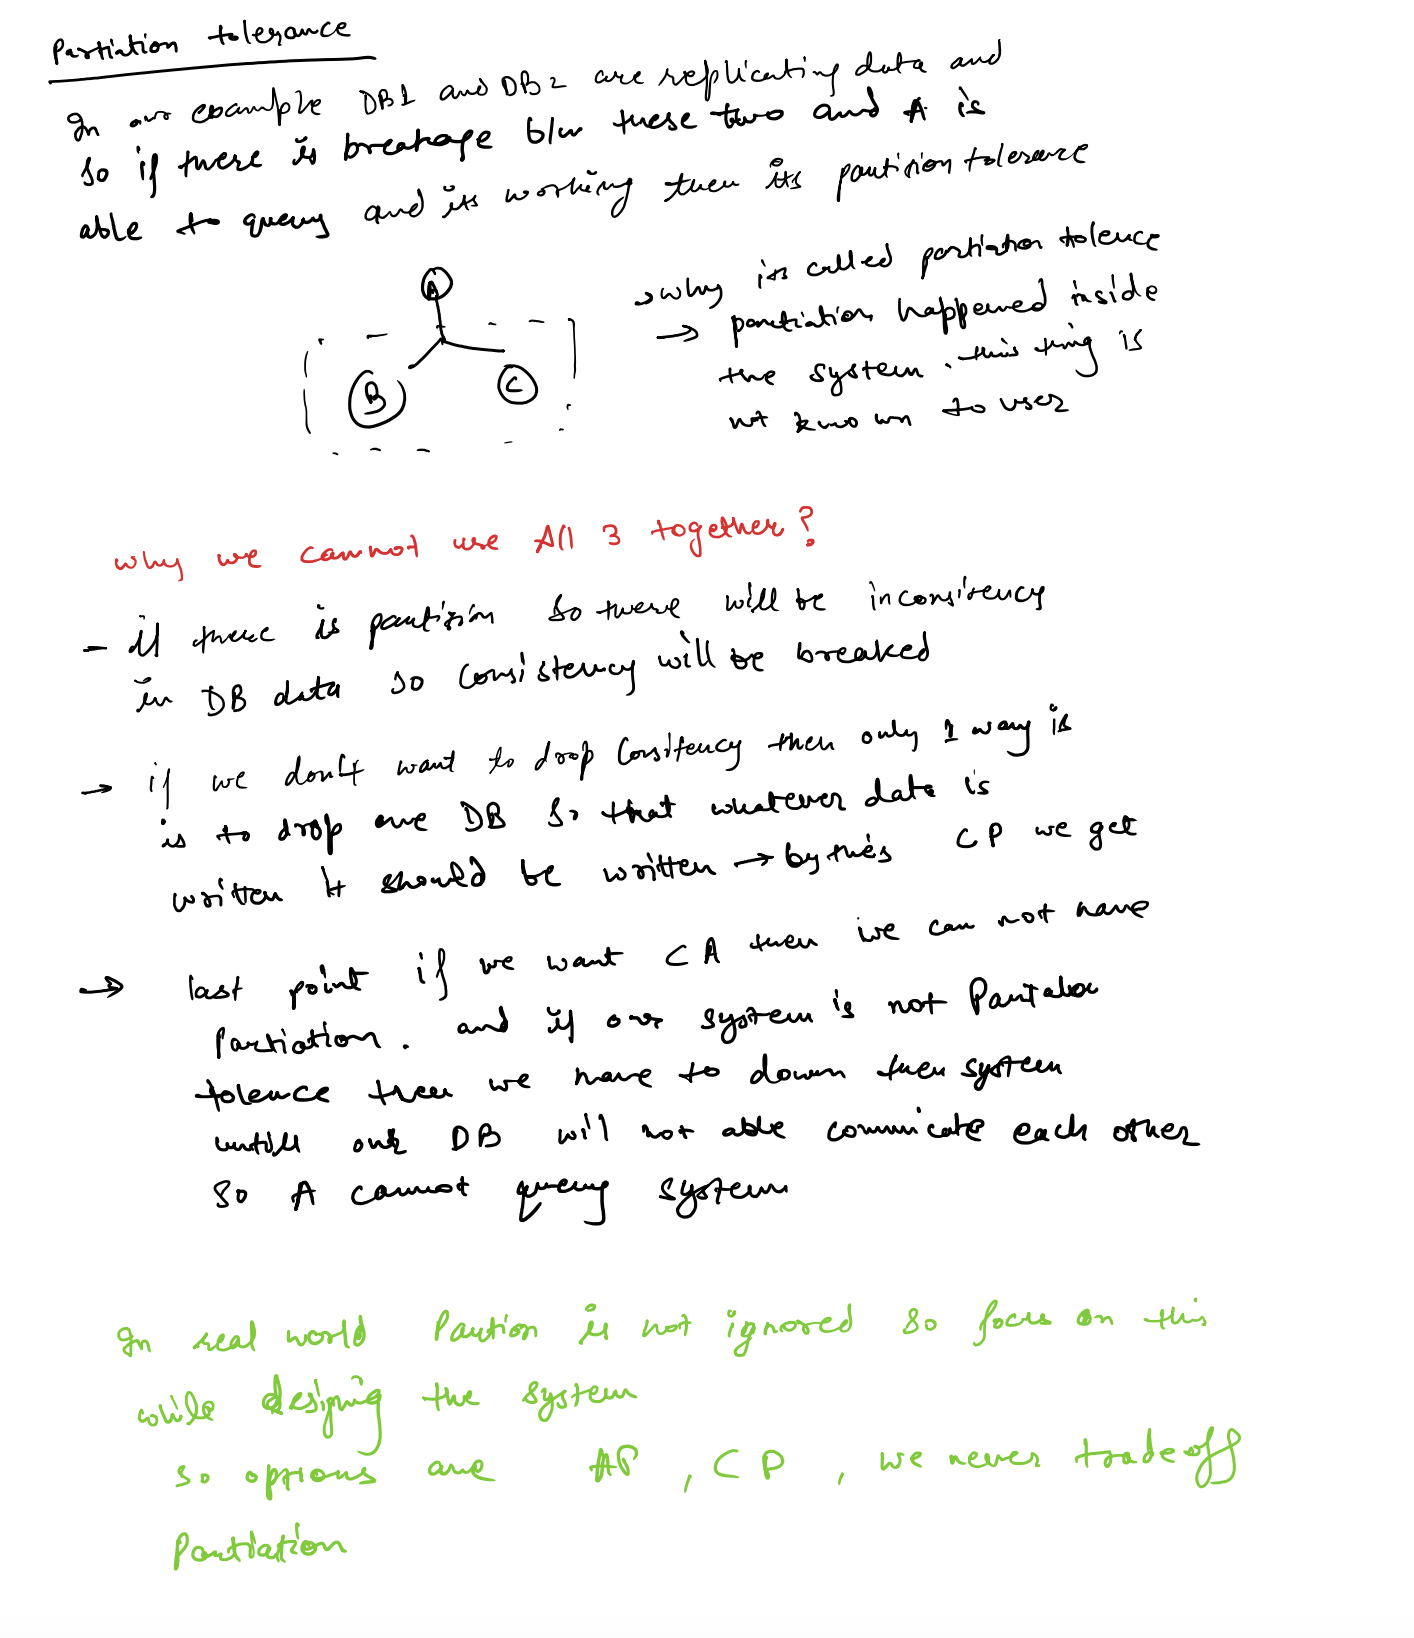 Partiation tolerance
In our example DB1 and DB2 are replicating data and
so if there is breakage b/w these two and A is
able to query and its working then its partition tolerance
A
B
C
→ why its called partiation tolence
→ partiation happened inside
the system. this thing is
not known to user
why we cannot use All 3 together?
- if there is partision so there will be inconsitency
in DB data so consistency will be breaked
→ if we don't want to drop Consitency then only 1 way is
is to drop one DB so that whatever data is
written it should be written → by this CP we get
→ last point if we want CA then we can not have
Partiation. and if our system is not
tolence then we have to down then system
untill our DB will not able commicate each other
so A cannot query system
In real world Parition is not ignored so focus on this
while designing the system
so options are AP, CP, we never tradeoff
Partiation